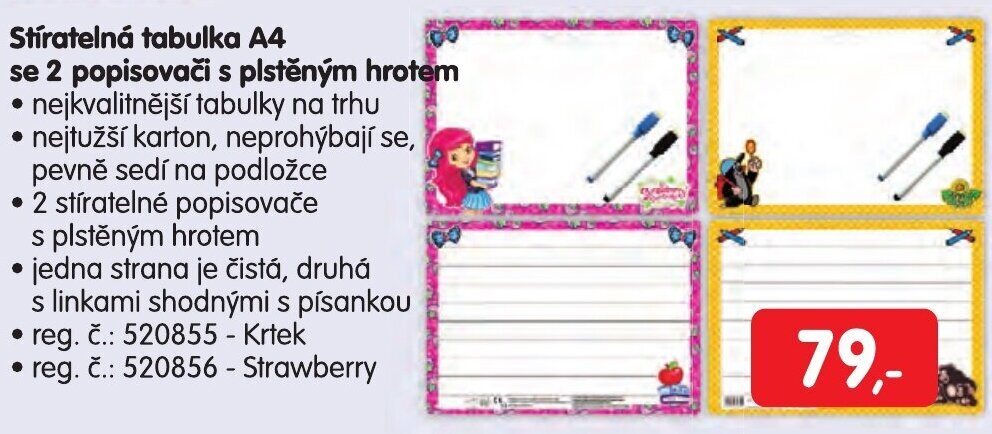 Stíratelná tabulka A4
se 2 popisovači s plstěným hrotem
• nejkvalitnější tabulky na trhu
• nejtužší karton, neprohýbají se,
pevně sedí na podložce
• 2 stíratelné popisovače
s plstěným hrotem
• jedna strana je čistá, druhá
s linkami shodnými s písankou
• reg. č.: 520855 - Krtek
• reg. č.: 520856 - Strawberry
79,-